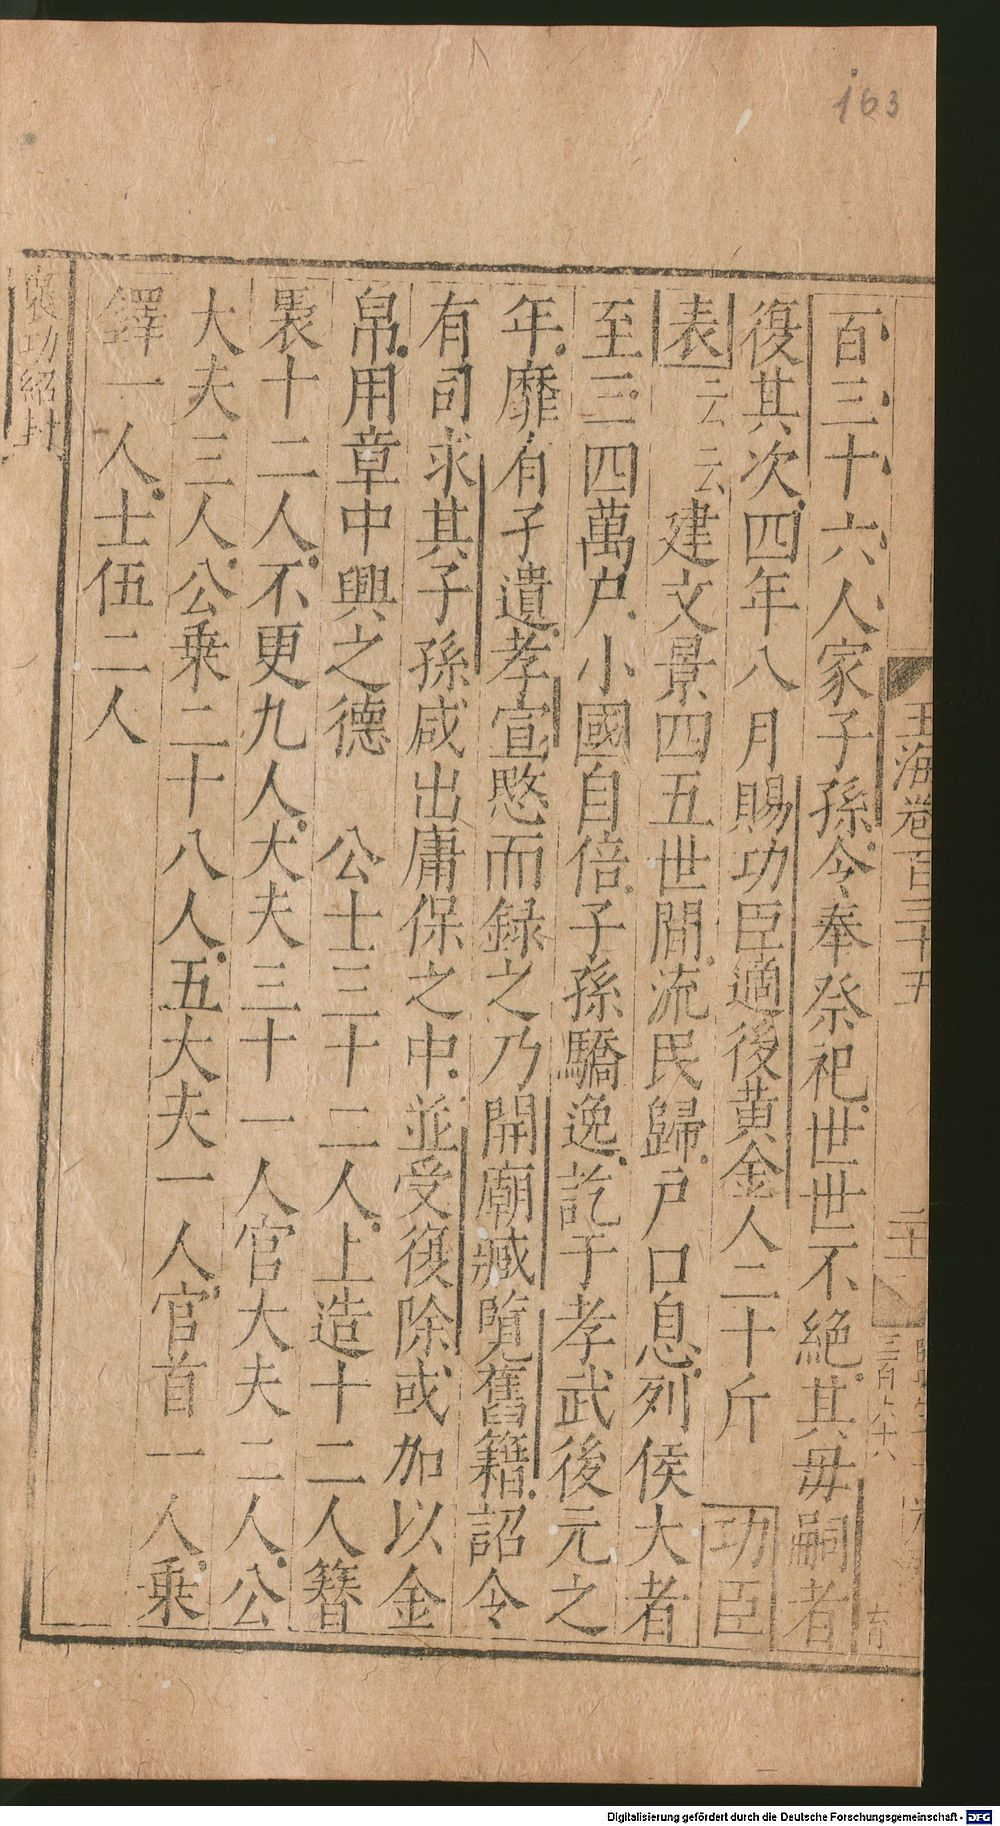 163
玉海卷百三十五
三百六十八
百三十六人家子孫令奉祭祀世世不絶其毋嗣者
復其次四年八月賜功臣適後黄金人二十斤 功臣
表云云建文景四五世間流民歸户口息列侯大者
至三四萬户小國自倍子孫驕逸訖于孝武後元之
年靡有孑遺孝宣愍而録之乃開廟臧覽舊籍詔令
有司求其子孫咸出庸保之中並受復除或加以金
帛用章中興之德 公士三十二人上造十二人簪
褭十二人不更九人大夫三十一人官大夫二人公
大夫三人公乗二十八人五大夫一人官首一人乗
鐸一人士伍二人
襃功紹封
Digitalisierung gefördert durch die Deutsche Forschungsgemeinschaft - DFG